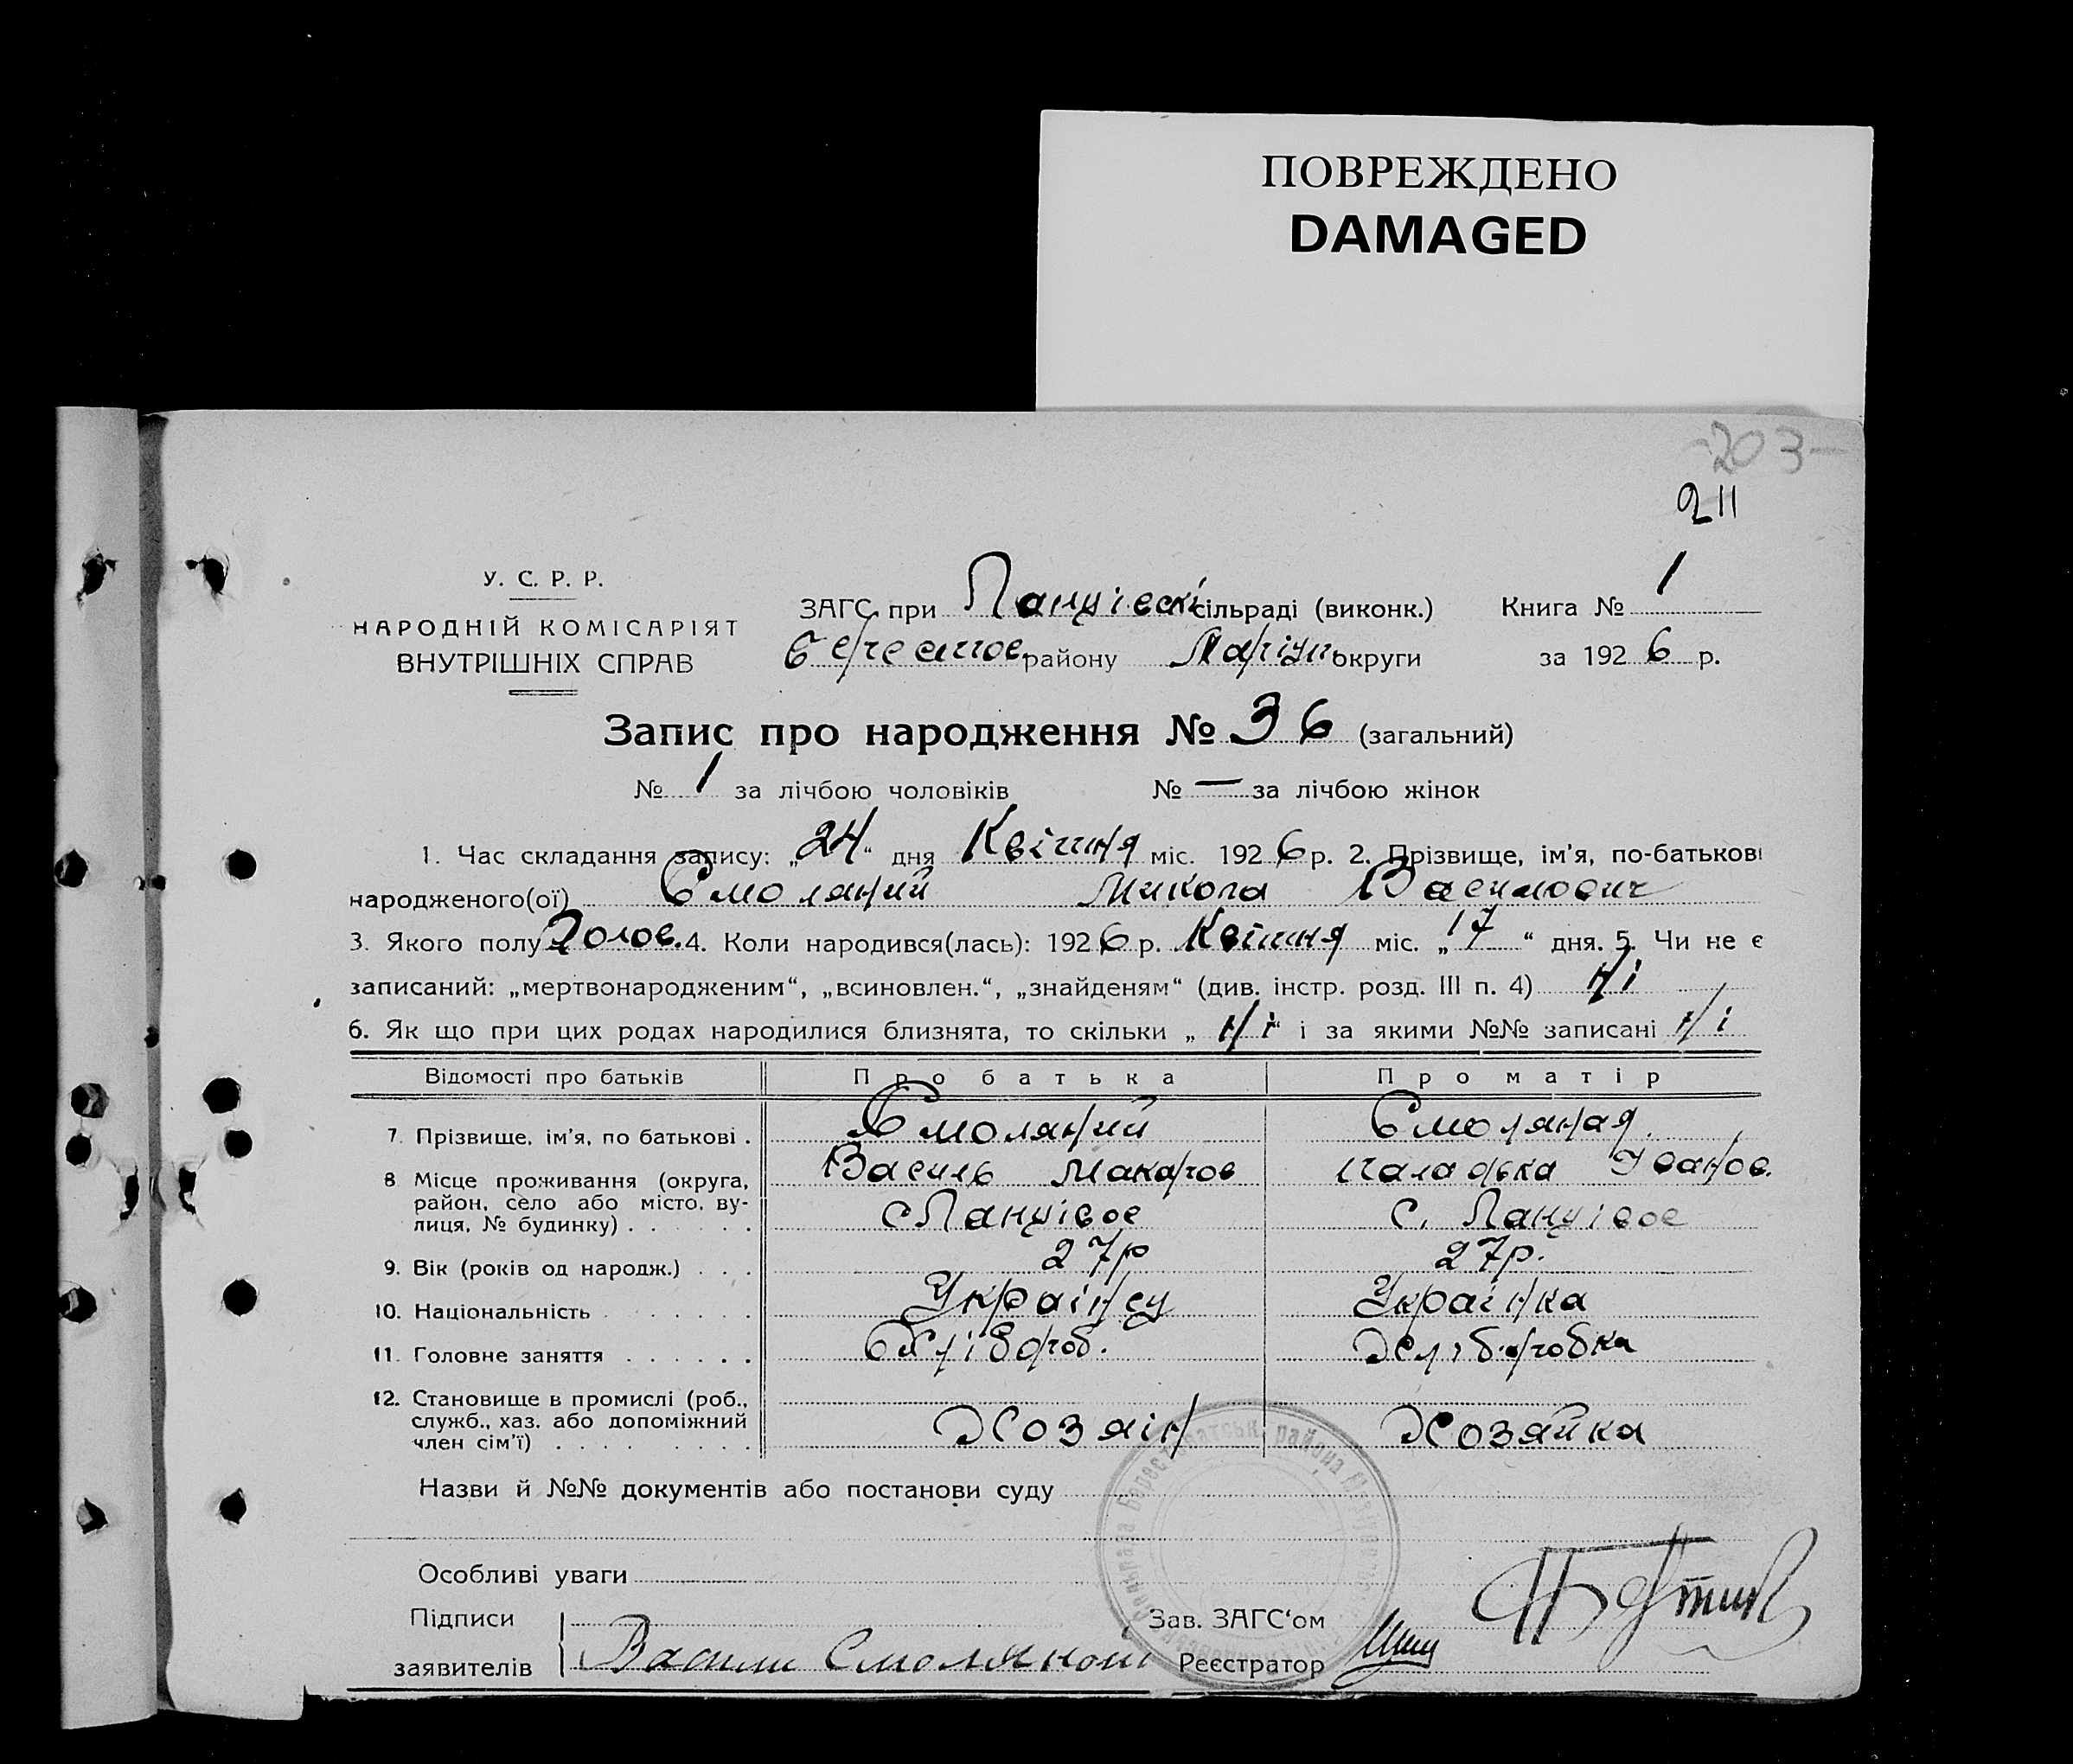 ПОВРЕЖДЕНО
DAMAGED
-203-
211
У. С. Р. Р.
НАРОДНІЙ КОМІСАРІЯТ
ВНУТРІШНІХ СПРАВ
ЗАГС при Ланцівскі сільраді (виконк.) Книга № 1
району Маріуп округи за 1926 р.
Запис про народження № 36 (загальний)
№ 1 за лічбою чоловіків № — за лічбою жінок
1. Час складання запису: „24“ дня Квітня міс. 1926 р. 2. Прізвище, ім'я, по-батькові
народженого(ої) Смоляний Микола Василович
3. Якого полу Чолов. 4. Коли народився(лась): 1926 р. Квітня міс. „17“ дня. 5. Чи не є
записаний: „мертвонародженим“, „всиновлен.“, „знайденям“ (див. інстр. розд. III п. 4) Ні
6. Як що при цих родах народилися близнята, то скільки „Ні“ і за якими №№ записані Ні
Відомості про батьків Про батька Про матір
7. Прізвище, ім'я, по батькові . Смоляний Смоляная
Василь Макаров Палажка Іванов.
8 Місце проживання (округа, район, село або місто, вулиця, № будинку) . . . с Ланцівое с. Ланцівое
9. Вік (років од народж.) . . . 27р 27р.
10. Національність . . . . . . Украінец Украінка
11. Головне заняття . . . . . . Хлібороб. Хліборобка
12. Становище в промислі (роб., служб., хаз. або допоміжний член сім'ї) . . . . . . . . Хозяін Хозяйка
Назви й №№ документів або постанови суду
Особливі уваги
Підписи
заявителів Василь Смоляной
Зав. ЗАГС'ом
Реєстратор